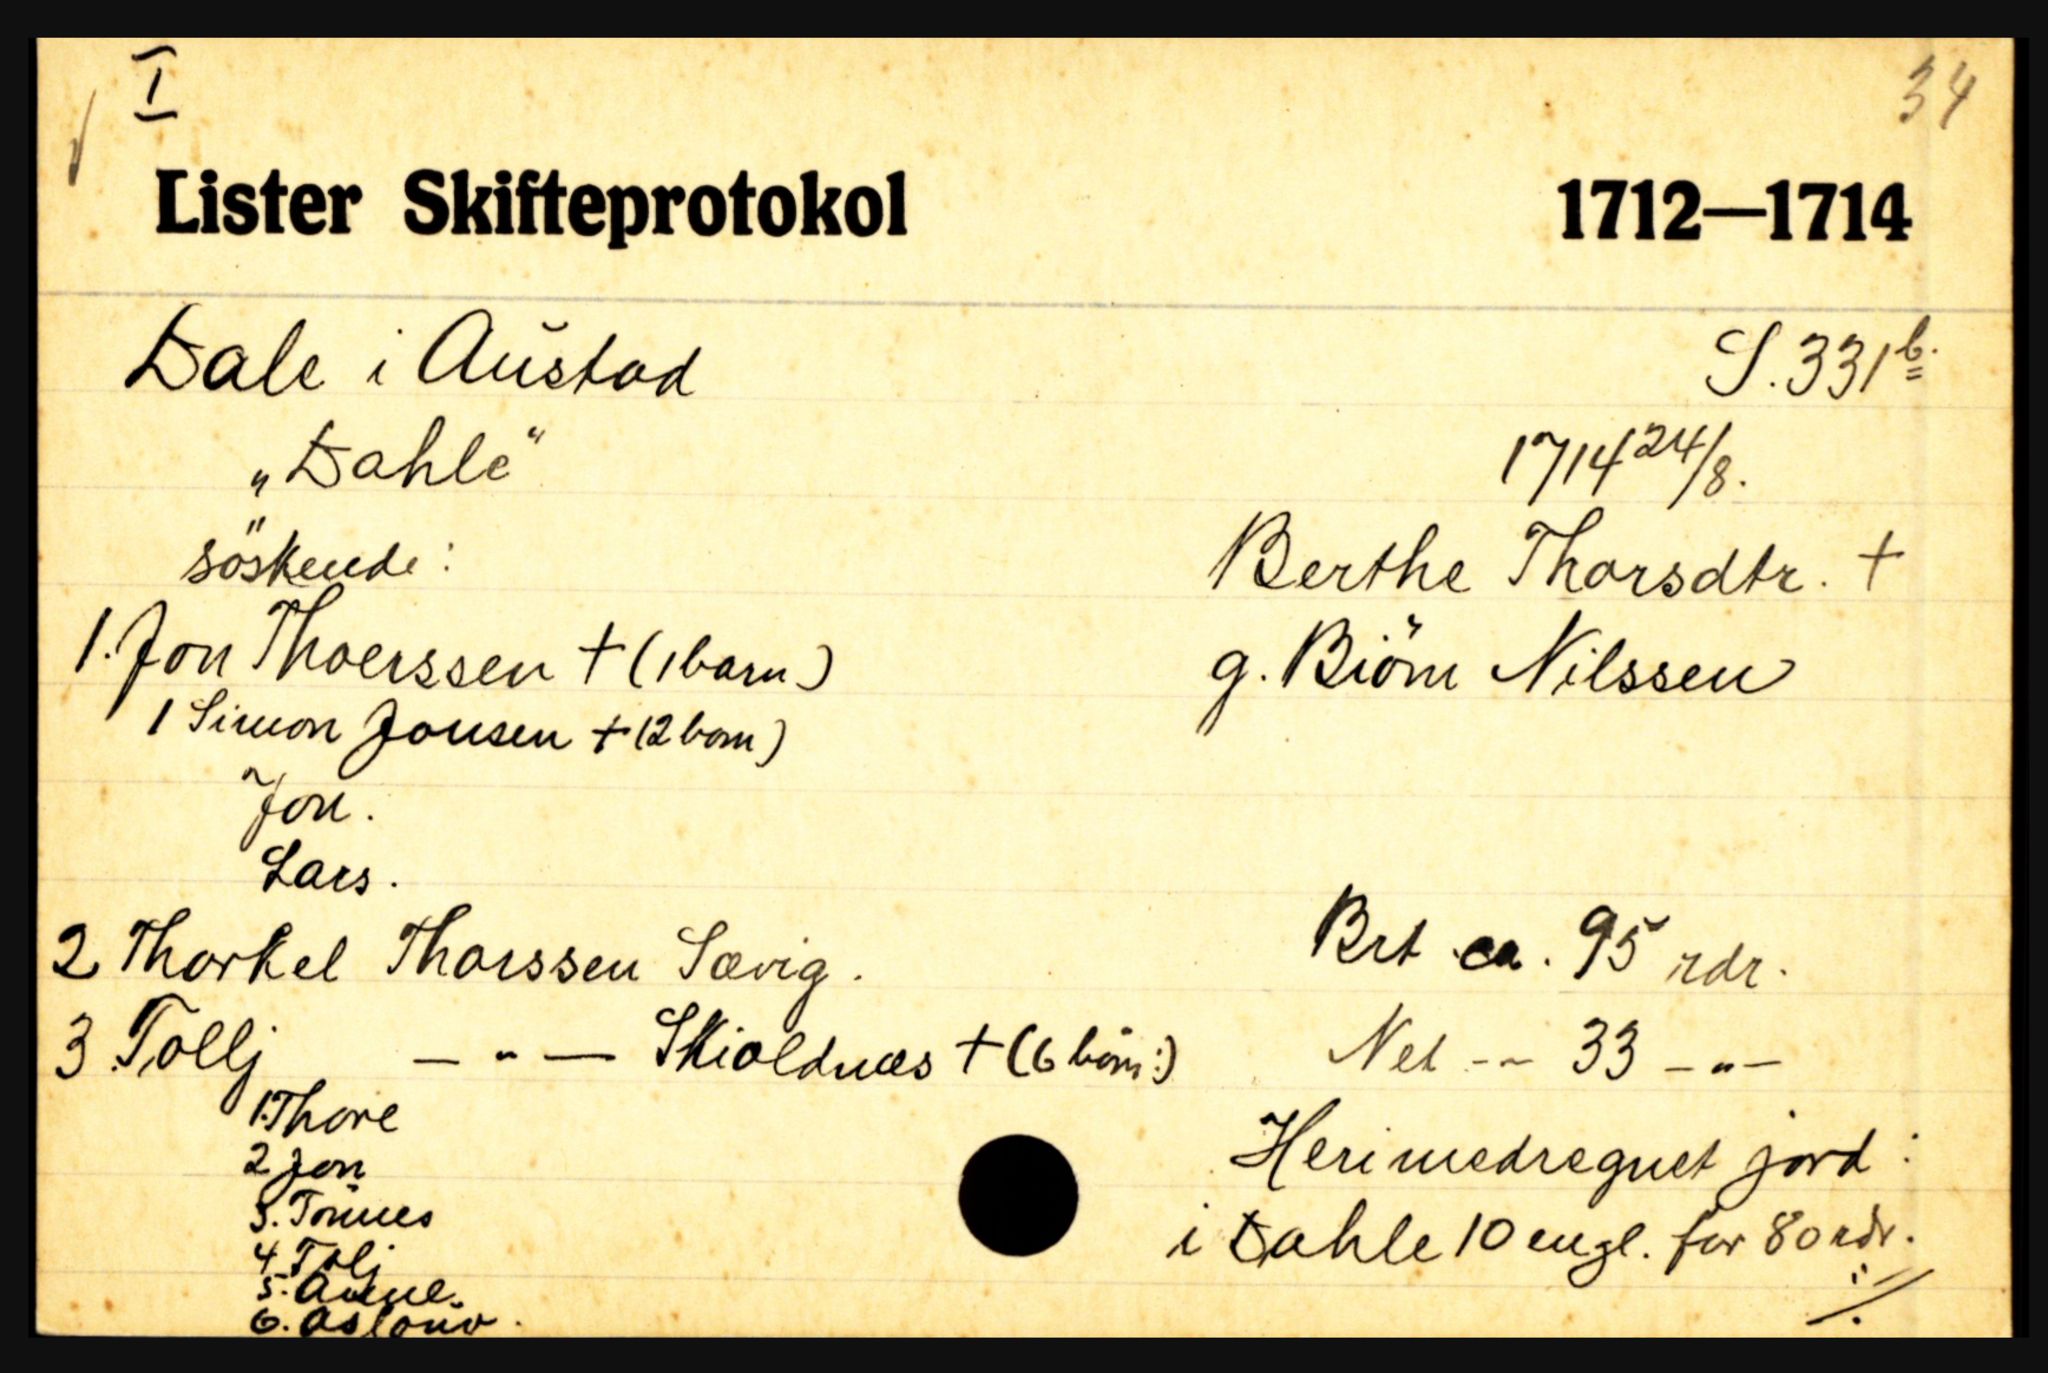 I
34
Lister Skifteprotokol 1712—1714
Dale i Austad S. 331 b.
„Dahle“ 1714 24/8.
söskende: Berthe Thorsdtr. +
1. Jon Thoerssen + (1 barn) g. Biörn Nilssen
1 Simon Jonsen + (2 barn)
Jon.
Lars.
2 Thorkel Thorssen Sævig. Brt ca. 95 rdr.
3. Tollj — " — Skioldnæs + (6 börn:) Net -- 33 — " —
1. Thore
2 Jon
Heri medregnet jord:
3. Tönnes
i Dahle 10 engl. for 80 rdr.
4. Tolj
5. Anne.
6. Aslouv.